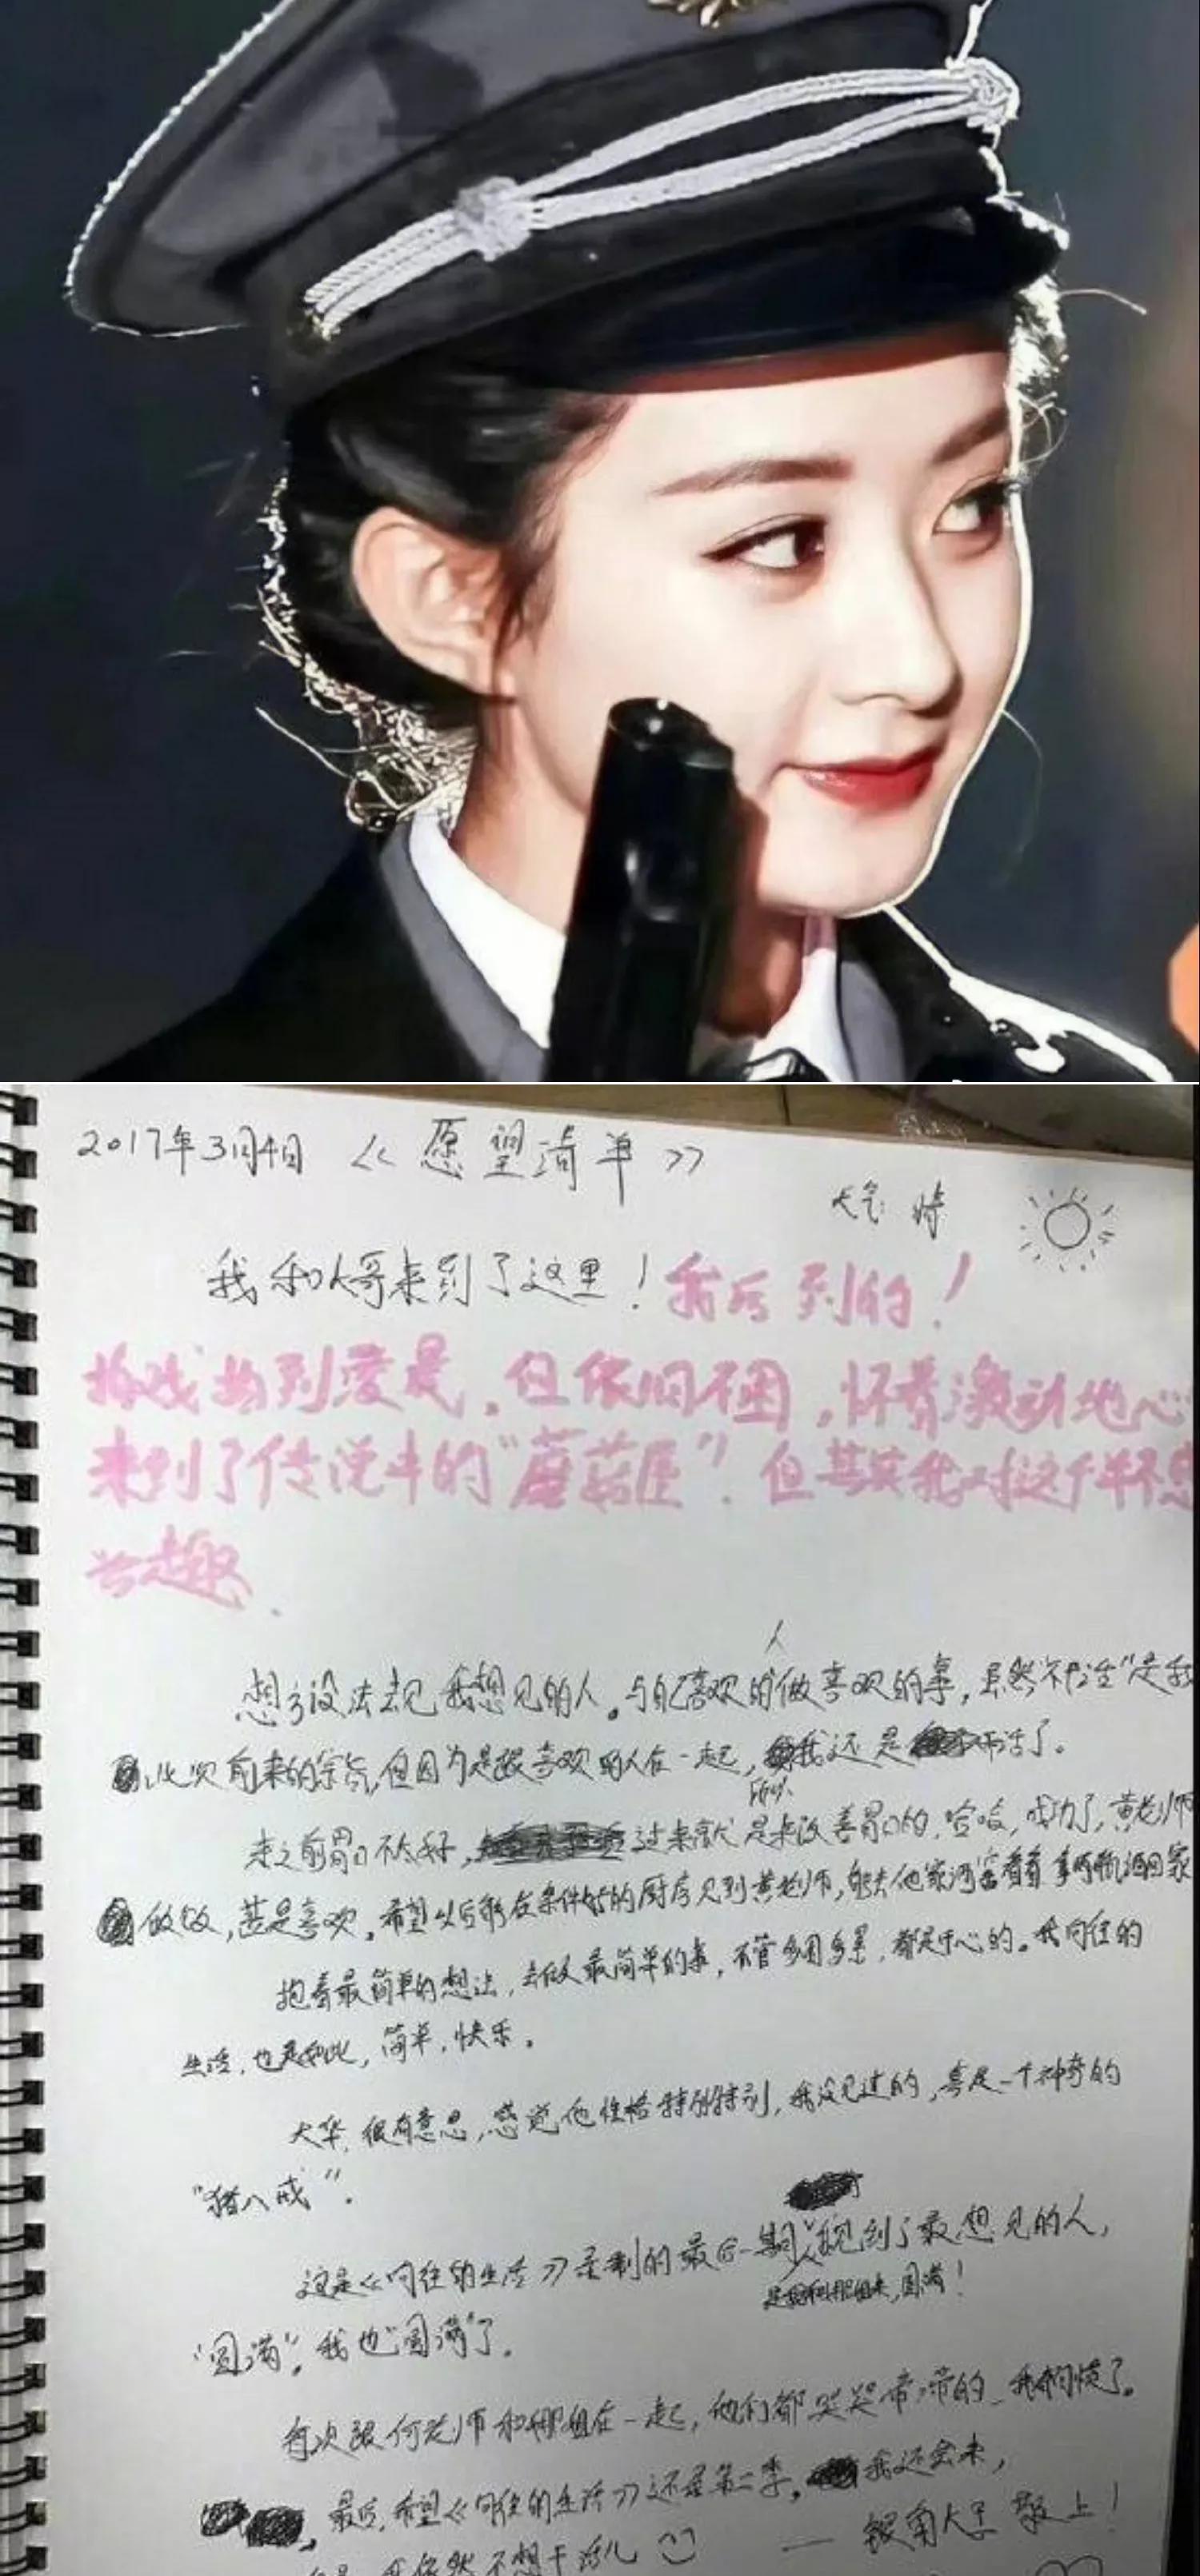 2017年3月4日 《愿望清单》
天气 晴
我和大哥来到了这里！我后到的！
拍戏拍到凌晨，但依旧不困，怀着激动地心
来到了传说中的“蘑菇屋”．但其实我对这个并不感
兴趣．
人
想方设法去见我想见的人。与自己喜欢的做喜欢的事，虽然“不干活”是我
此次前来的宗旨，但因为是跟喜欢的人在一起，我还是干活了。
所以
来之前胃口不太好，过来就是来改善胃口的．哈哈，成功了，黄老师
做饭，甚是喜欢．希望以后能在条件好的厨房见到黄老师，能去他家酒窖看看拿两瓶酒回家
抱着最简单的想法，去做最简单的事，不管多困多累，都是开心的。我向往的
生活，也是如此，简单，快乐．
大华，很有意思，感觉他性格特别特别，我没见过的，真是一个神奇的
“猪八戒”．
这是《向往的生活》录制的最后一期，我见到了最想见的人，
圆满！
“圆满”，我也“圆满”了．
每次跟何老师和娜姐在一起，他们都哭哭啼啼的
最后，希望《向往的生活》还是第二季，我还会来，
我依然不想干活儿
— 银角大王 敬上！